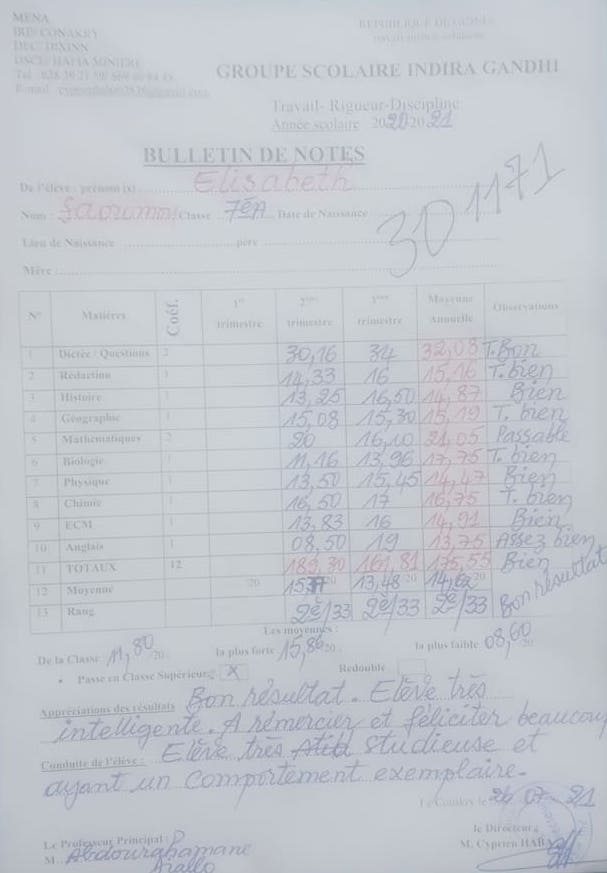 MENA
IRE/ CONAKRY
DEC/ DIXINN
DSCE/ HAFIA MINIERE
REPUBLIQUE DE GUINEE
GROUPE SCOLAIRE INDIRA GANDHI
Travail- Rigueur-Discipline
Année scolaire 2020 2021
BULLETIN DE NOTES
De l'élève : prénom (s) Elisabeth
Nom : Classe : 7èA Date de Naissance
301171
Lieu de Naissance père
Mère :
N° Matières Coéf. 1er trimestre 2ème trimestre 3ème trimestre Moyenne Annuelle Observations
1 Dictée / Questions 2 30,16 34 32,08 T.Bon
2 Rédaction 1 14,33 16 15,16 T. bien
3 Histoire 1 13,25 16,50 14,87 Bien
4 Géographie 1 15,08 15,30 15,19 T. bien
5 Mathématiques 2 20 16,10 21,05 Passable
6 Biologie 1 11,16 13,96 17,75 T. bien
7 Physique 1 13,50 15,45 14,47 Bien
8 Chimie 1 16,50 17 16,75 T. bien
9 ECM 1 13,83 16 14,91 Bien
10 Anglais 1 08,50 19 13,75 Assez bien
11 TOTAUX 12 189,30 161,81 175,55 Bien
12 Moyenne 20 20 13,48 20 20 Bon résultat
13 Rang 2è/33 2è/33 2è/33
Les moyennes :
De la Classe 11,80 20 la plus forte 15,86 20 la plus faible 08,60 20
• Passe en Classe Supérieure X Redouble
Appréciations des résultats Bon résultat. Elève très
intelligente. A rémercier et féliciter beaucoup
Conduite de l'élève : Elève très studieuse et
ayant un comportement exemplaire.
Conakry le 26 07 21
Le Professeur Principal : le Directeur :
M. Abdourahamane M. Cyprien HABA